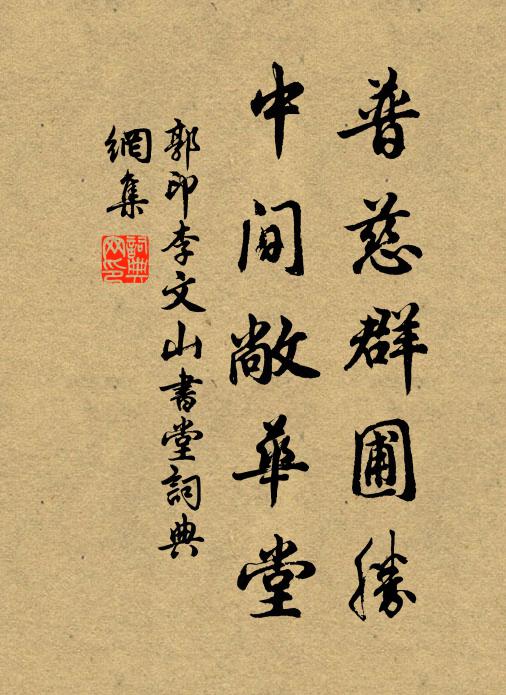 普慈群圃勝
中間敞華堂
郭印李文山書堂詞典
網集
詞典
网印